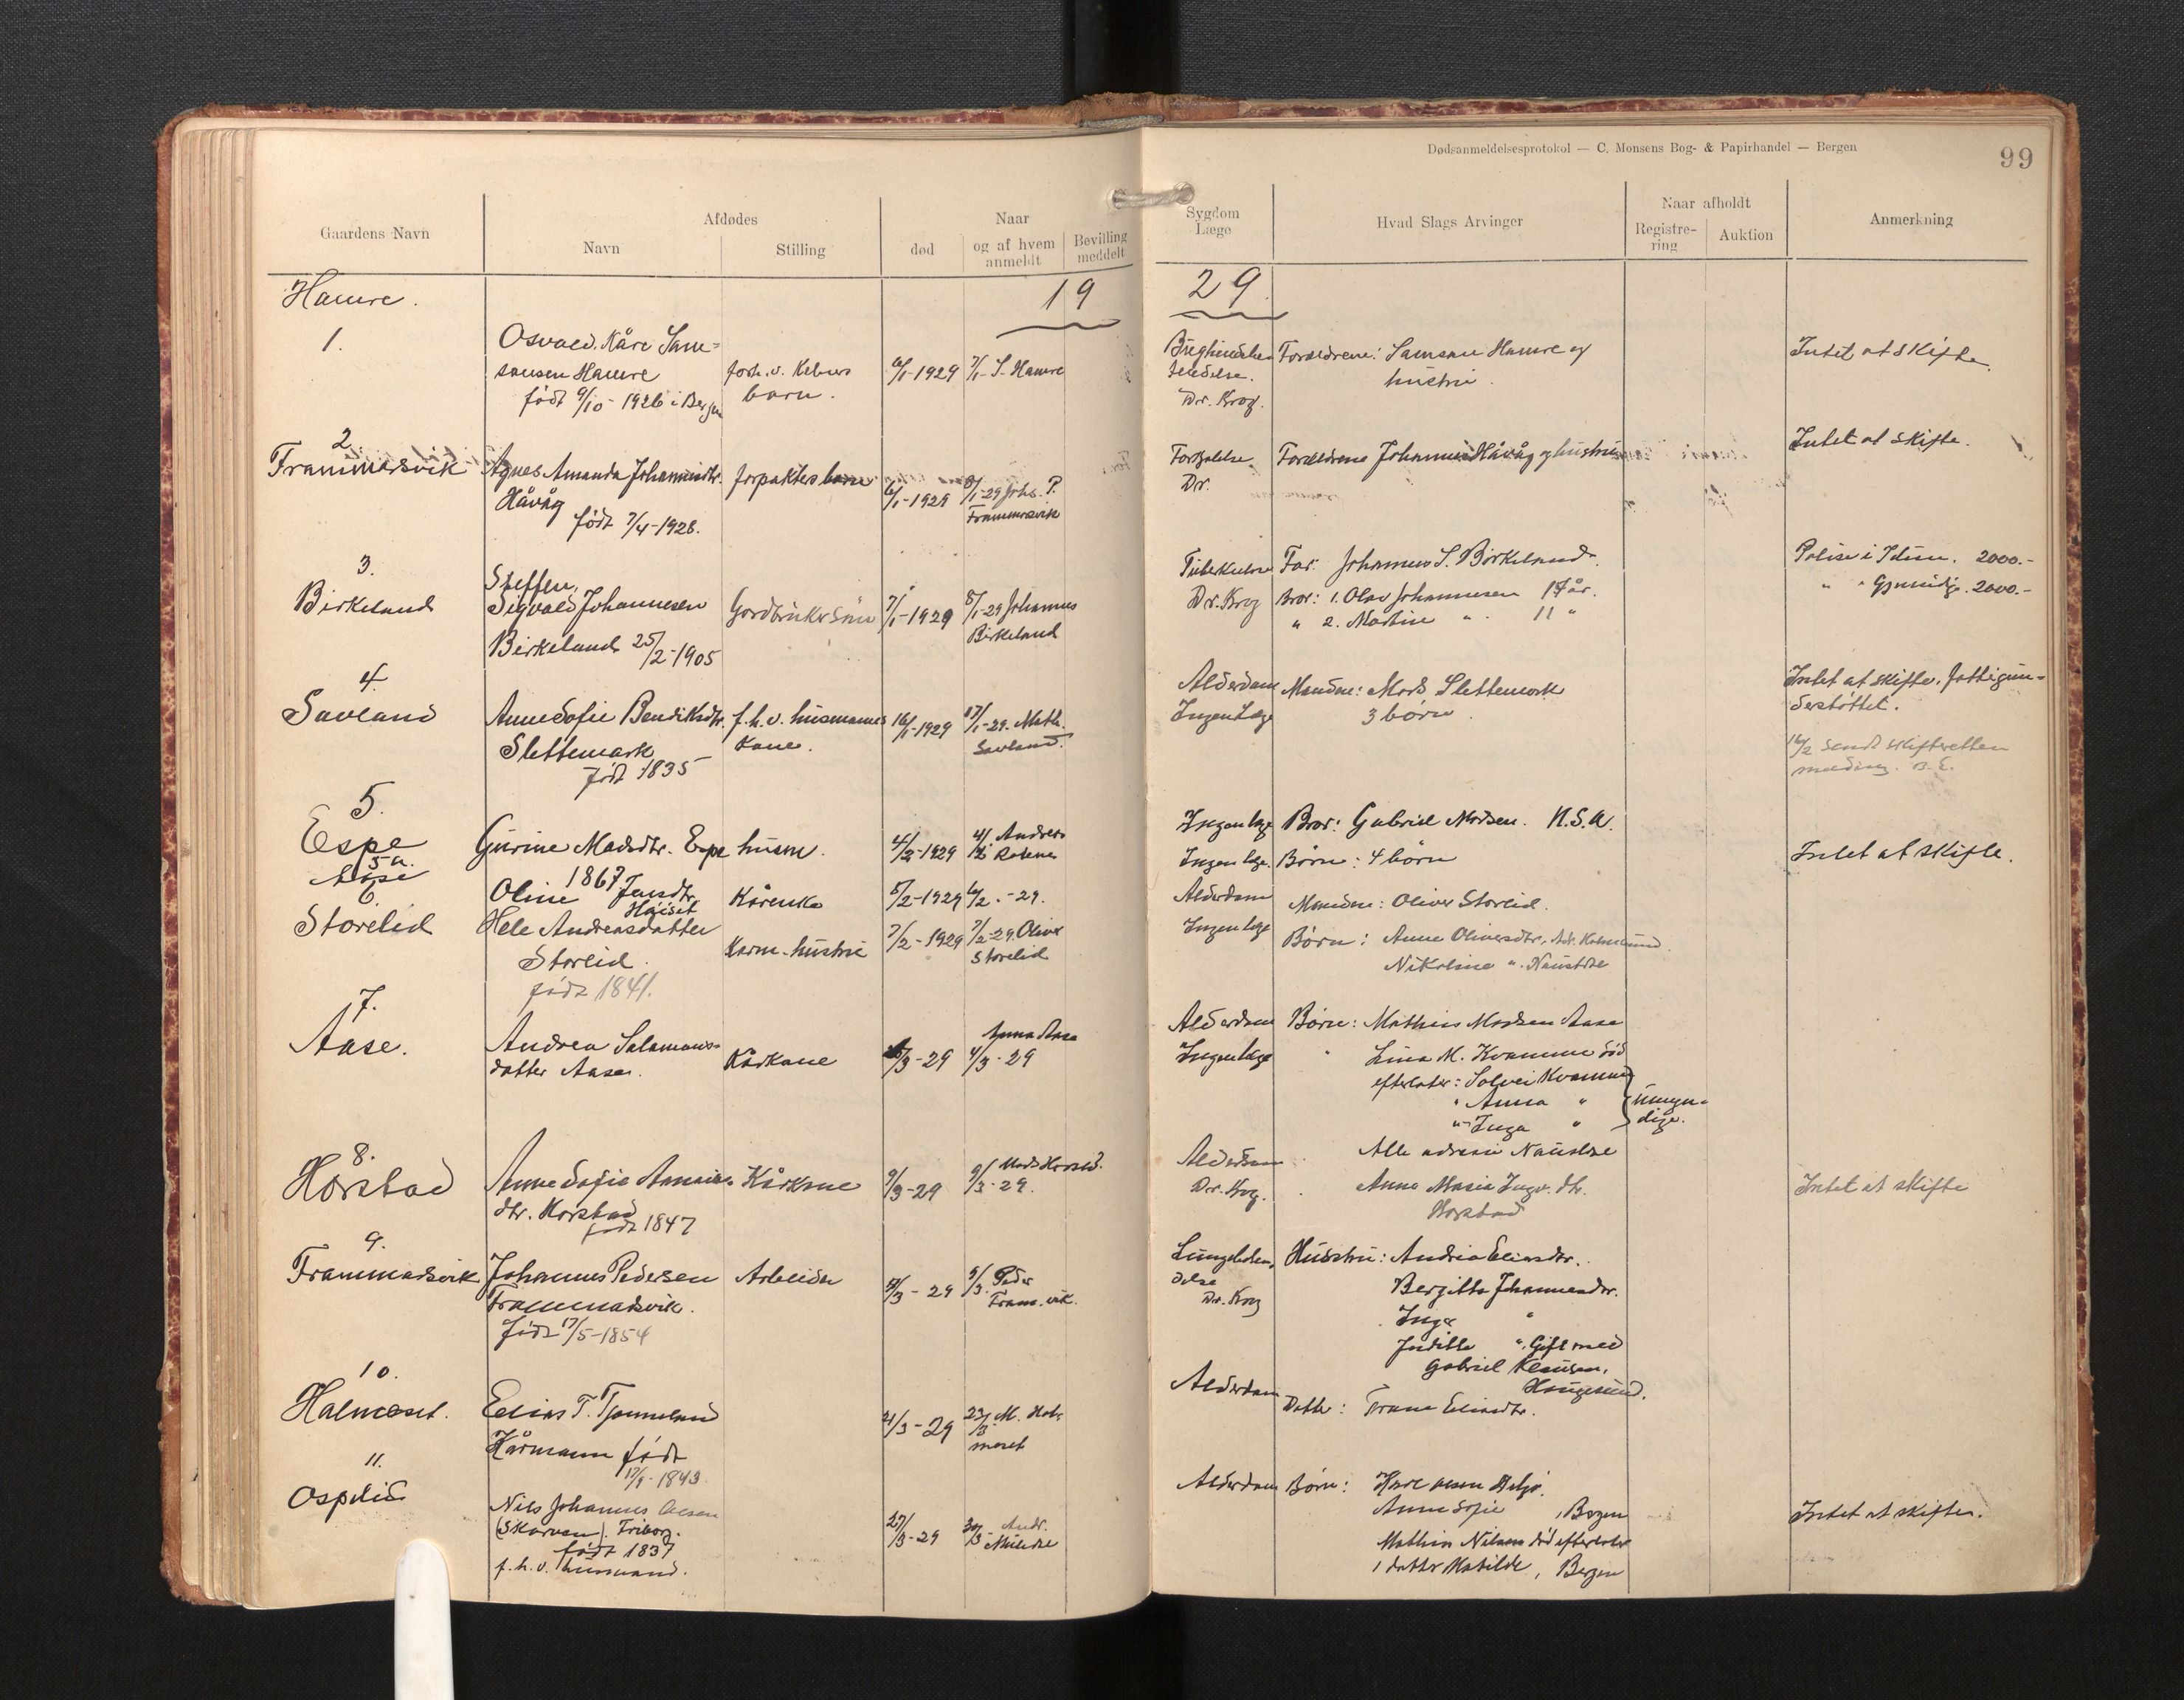 Dødsanmeldelsesprotokol — C. Monsens Bog- & Papirhandel — Bergen
99
Gaardens Navn
Afdødes
Navn
Stilling
Naar
død
og af hvem anmeldt
Bevilling meddelt
Sygdom
Læge
Hvad Slags Arvinger
Naar afholdt
Registre-
ring
Auktion
Anmerkning
1929
Hamre.
1.
Osvald Kåre Sam=
sonsen Hamre
født 9/10-1926 i Bergen
barn.
6/1-1929
7/1- S. Hamre
Dr. Krog.
Forældrene: Samson Hamre og
hustru.
Intet at skifte.
2.
Frammarsvik
Agnes Amanda Johannesdtr.
Håvåg
født 7/4-1928.
forpakters barn
6/1-1929
8/1-29 Johs. P.
Frammarsvik
Dr.
Forældrene Johannes Håvåg og hustru
Intet at skifte.
3.
Birkeland
Steffen
Sigvald Johannesen
Birkeland 25/2-1905
Gardbruker Søn
7/1-1929
8/1-29 Johannes
Birkeland
Tuberkulose
Dr. Krog
Far: Johannes S. Birkeland.
Bror: 1. Olav Johannesen 17 år.
" 2. Martin " . 11 "
Polise i Idun. 2000.-
" " Gjensidige. 2000.-
4.
Savland
Anne Sofie Bendiksdtr.
Slettemark
født 1835
f.h.v. husmanns
Kone.
16/1-1929
17/1-29. Math.
Savland.
Alderdom
Ingen Læge
Manden: Mads Slettemark
3 børn.
Intet at skifte. fattigun-
derstøttet.
16/2 sendt skifteretten
melding. B. E.
5.
Espe
Gurine Madsdtr. Espe
1867
husm.
4/2-1929
4/2 Anders
Ingen læge
Bror: Gabriel Madsen. U.S.A.
5 a.
Oline Jensdtr.
Kårenke
5/2-1929
6/2.-29.
Ingen læge.
Børn: 4 børn
Intet at skifte.
6.
Storelid
Hele Andreasdatter
Storlid.
født 1841.
Karm. hustru
7/2-1929
7/2-29. Oliver
Storelid
Alderdom
Ingen læge
Manden: Oliver Storlid.
Børn: Anne Oliversdtr.
Nikoline ". Naustdal
7.
Aase.
Andrea Salamons-
datter Aase.
Kårkone
/3-29
Anna Aase
4/3-29
Alderdom
Ingen læge
Børn: Mathias Madsen Aase
" Lina M. Kvamme død
efterlater: Solvei Kvamme
" Anna "
" Inga "
umyn-
dige.
Alle adresse Naustdal
8.
Horstad
Anne Sofie
dtr. Horstad
født 1847
Kårkone
9/3-29
9/3-29. Mads Horstad.
Alderdom
Dr. Krog.
Anne Maria Ingv. dtr.
Horstad
Intet at skifte
9.
Frammarsvik
Johannes Pedersen
Frammarsvik.
født 17/5-1854
Arbeider
/3-29
9/3. Peder
Fram. vik.
Lungebeten-
delse
Dr. Krog
Hustru: Andrea Eliasdtr.
Bergitte Johannesdtr.
Inga "
Juditte " Gift med
Gabriel Clausen,
Haugesund.
10.
Halmøset.
Elias T. Tjønneland
Kårmann født
1843
21/3-29
23/3 M. Hal-
møset
Alderdom
Datter: Frane Eliasdtr.
11.
Ospelid
Nils Johannes Olsen
(Skarven). Friborg.
født 1837
f.h.v. husmand.
27/3-29
30/3- Andr.
Alderdom
Børn:
Anne Sofie , Bergen
Mathias Nilsen død efterlater
1 datter Matilde, Bergen
Intet at skifte.